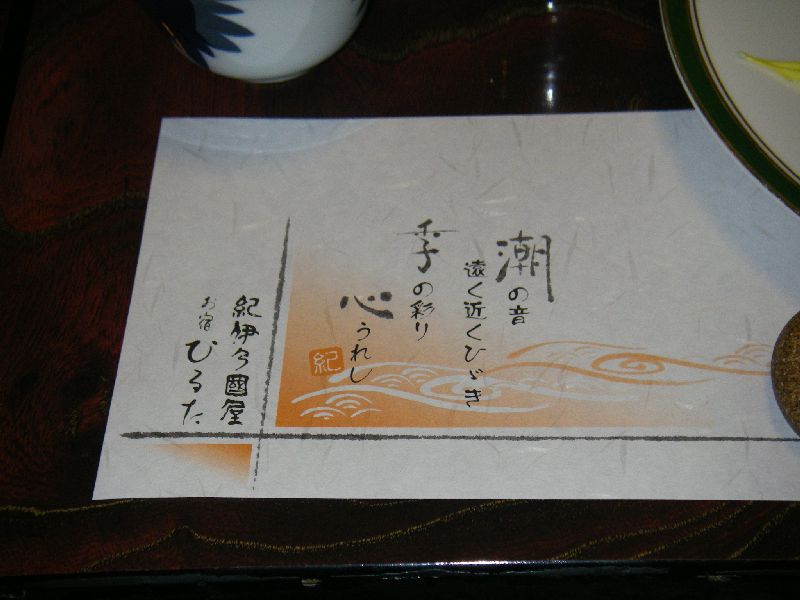 潮の音
遠く近くひゞき
季の彩り
心うれし
紀
紀伊乃國屋
お宿 ひるた